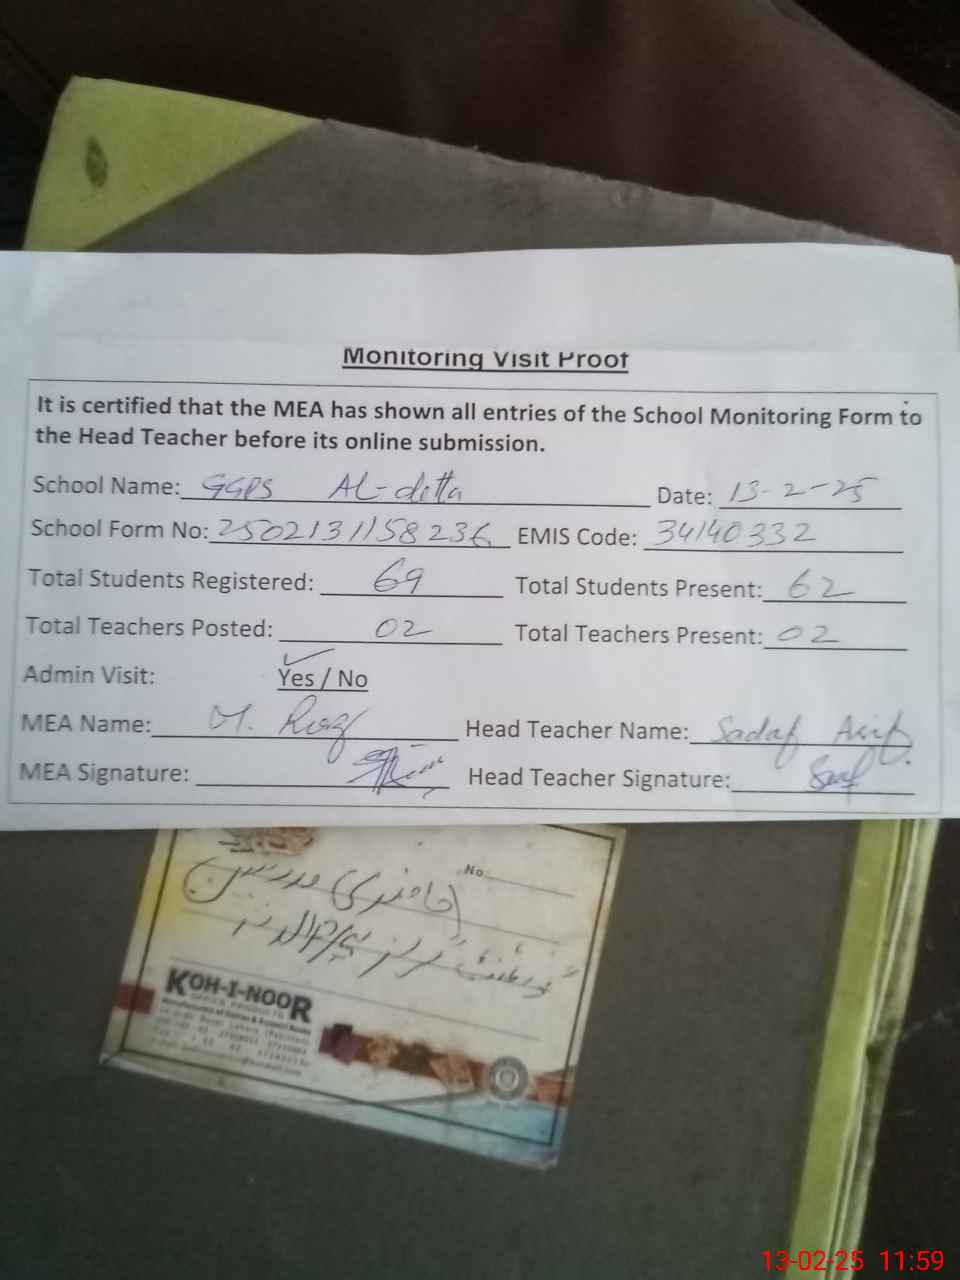 Monitoring Visit Proof
It is certified that the MEA has shown all entries of the School Monitoring Form to
the Head Teacher before its online submission.
School Name: GGPS AL-ditta Date: 13-2-25
School Form No: 2502131158236 EMIS Code: 34140332
Total Students Registered: 69 Total Students Present: 62
Total Teachers Posted: 02 Total Teachers Present: 02
Admin Visit: Yes / No
MEA Name: M. Head Teacher Name: Sadaf Arif
MEA Signature: Head Teacher Signature:
No
حاضری مدرسین
گورنمنٹ گرلز
KOH-I-NOOR
OFFICE PRODUCTS
13-02-25 11:59